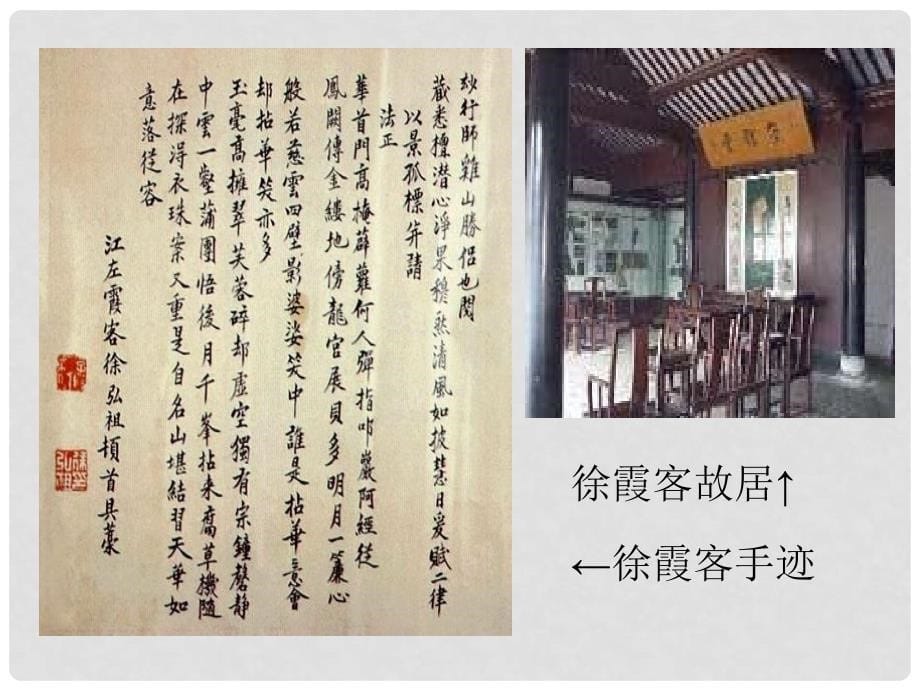 玅行師雞山勝侶也閱
藏悉檀潛心淨果穆然清風如披慧日爰賦二律
以景孤標并請
法正
華首門高掩薜蘿何人彈指叩巖阿經從
鳳闕傳金縷地傍龍宮展貝多明月一簾心
般若慈雲四壁影婆娑笑中誰是拈華意會
却拈華笑亦多
玉毫高擁翠芙蓉碎却虛空獨有宗鐘磬靜
中雲一壑蒲團悟後月千峯拈來腐草機隨
在探得衣珠案又重是自名山堪結習天華如
意落從容
江左霞客徐弘祖頓首具藁
徐霞客故居↑
←徐霞客手迹